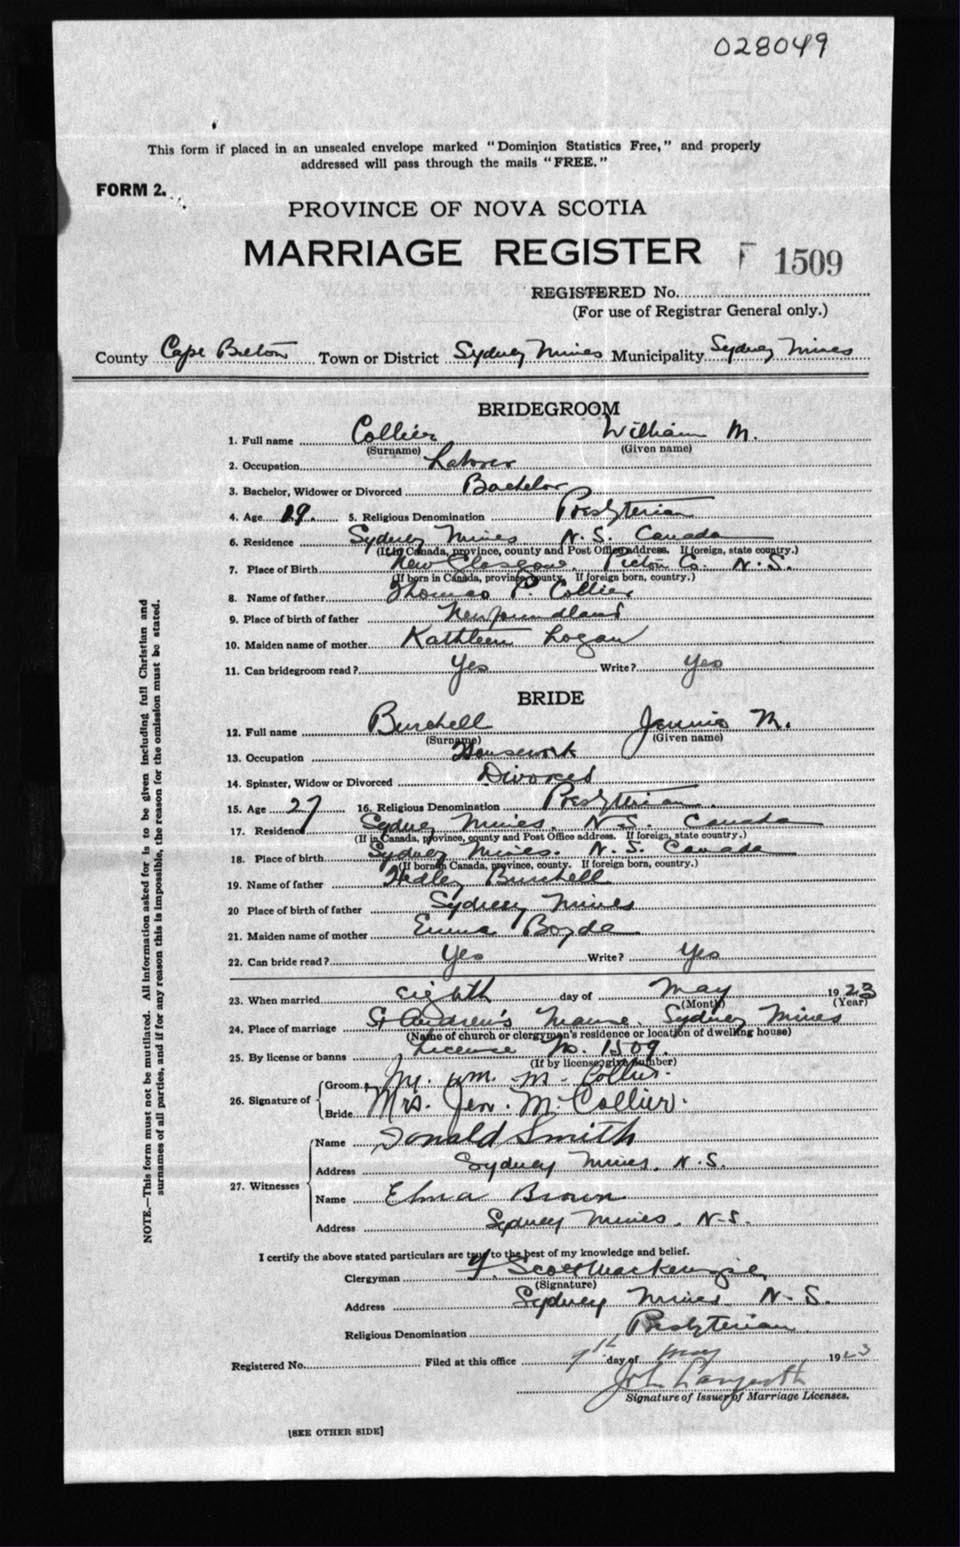 028049
This form if placed in an unsealed envelope marked "Dominion Statistics Free," and properly
addressed will pass through the mails "FREE."
FORM 2.
PROVINCE OF NOVA SCOTIA
MARRIAGE REGISTER F 1509
REGISTERED No.
(For use of Registrar General only.)
County Cape Breton Town or District Sydney Mines Municipality Sydney Mines
BRIDEGROOM
1. Full name Collier William M.
(Surname) (Given name)
2. Occupation Laborer
3. Bachelor, Widower or Divorced Bachelor
4. Age 19. 5. Religious Denomination Presbyterian
6. Residence Sydney Mines N. S. Canada
(If in Canada, province, county and Post Office address. If foreign, state country.)
7. Place of Birth New Glasgow, Pictou Co. N. S.
(If born in Canada, province, county. If foreign born, country.)
8. Name of father Thomas P. Collier
9. Place of birth of father Newfoundland
10. Maiden name of mother Kathleen Logan
11. Can bridegroom read? Yes Write? Yes
BRIDE
12. Full name Burchell Jennie M.
(Surname) (Given name)
13. Occupation Housework
14. Spinster, Widow or Divorced Divorced
15. Age 27 16. Religious Denomination Presbyterian
17. Residence Sydney Mines, N. S. Canada
(If in Canada, province, county and Post Office address. If foreign, state country.)
18. Place of birth Sydney Mines. N. S. Canada
(If born in Canada, province, county. If foreign born, country.)
19. Name of father Hedley Burchell
20 Place of birth of father Sydney Mines
21. Maiden name of mother Emma Boyde
22. Can bride read? Yes Write? Yes
23. When married eighth day of May 1923
(Month) (Year)
24. Place of marriage St Andrew's Manse, Sydney Mines
(Name of church or clergyman's residence or location of dwelling house)
25. By license or banns License No. 1509.
(If by license, give number)
26. Signature of Groom Mr. Wm. M. Collier.
Bride Mrs. Jen. M. Collier.
27. Witnesses
Name Donald Smith
Address Sydney Mines, N. S.
Name Elma Brown
Address Sydney Mines, N. S.
I certify the above stated particulars are true to the best of my knowledge and belief.
Clergyman Scott MacKenzie
(Signature)
Address Sydney Mines N. S.
Religious Denomination Presbyterian
Registered No. Filed at this office 9th day of May 1923
John
Signature of Issuer of Marriage Licenses.
[SEE OTHER SIDE]
NOTE.—This form must not be mutilated. All information asked for is to be given including full Christian and
surnames of all parties, and if for any reason this is impossible, the reason for the omission must be stated.